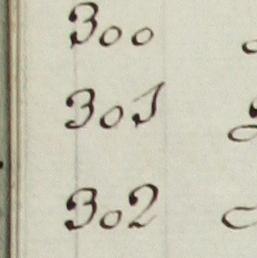 300
301
302